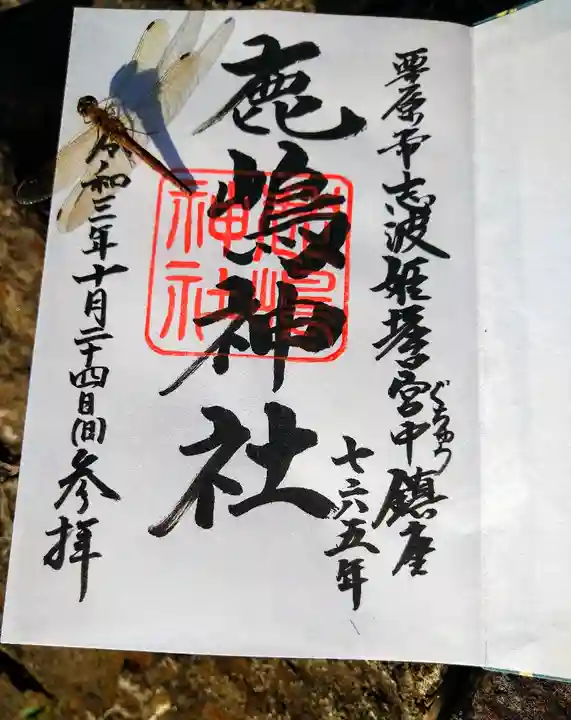 栗原市志波姫堀口宮中鎮座
七六五年
鹿嶋神社
鹿嶋
神社
令和三年十月二十四日(日)参拝